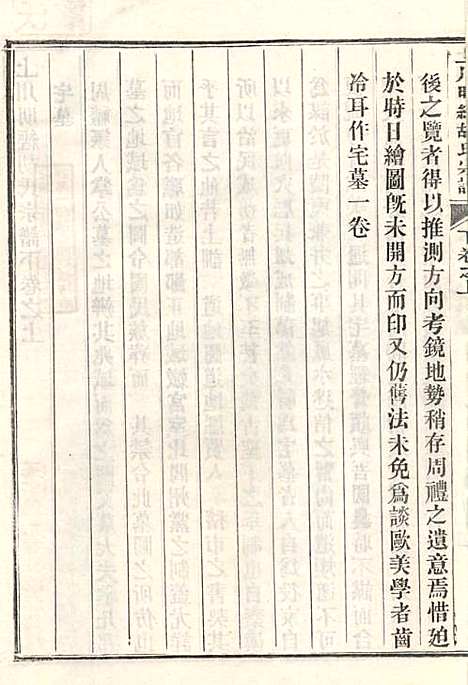 上川明經胡氏宗譜 下卷之上
後之覽者得以推測方向考鏡地勢稍存周禮之遺意焉惜廹
於時日繪圖旣未開方而印又仍舊法未免爲談歐美學者齒
冷耳作宅墓一卷